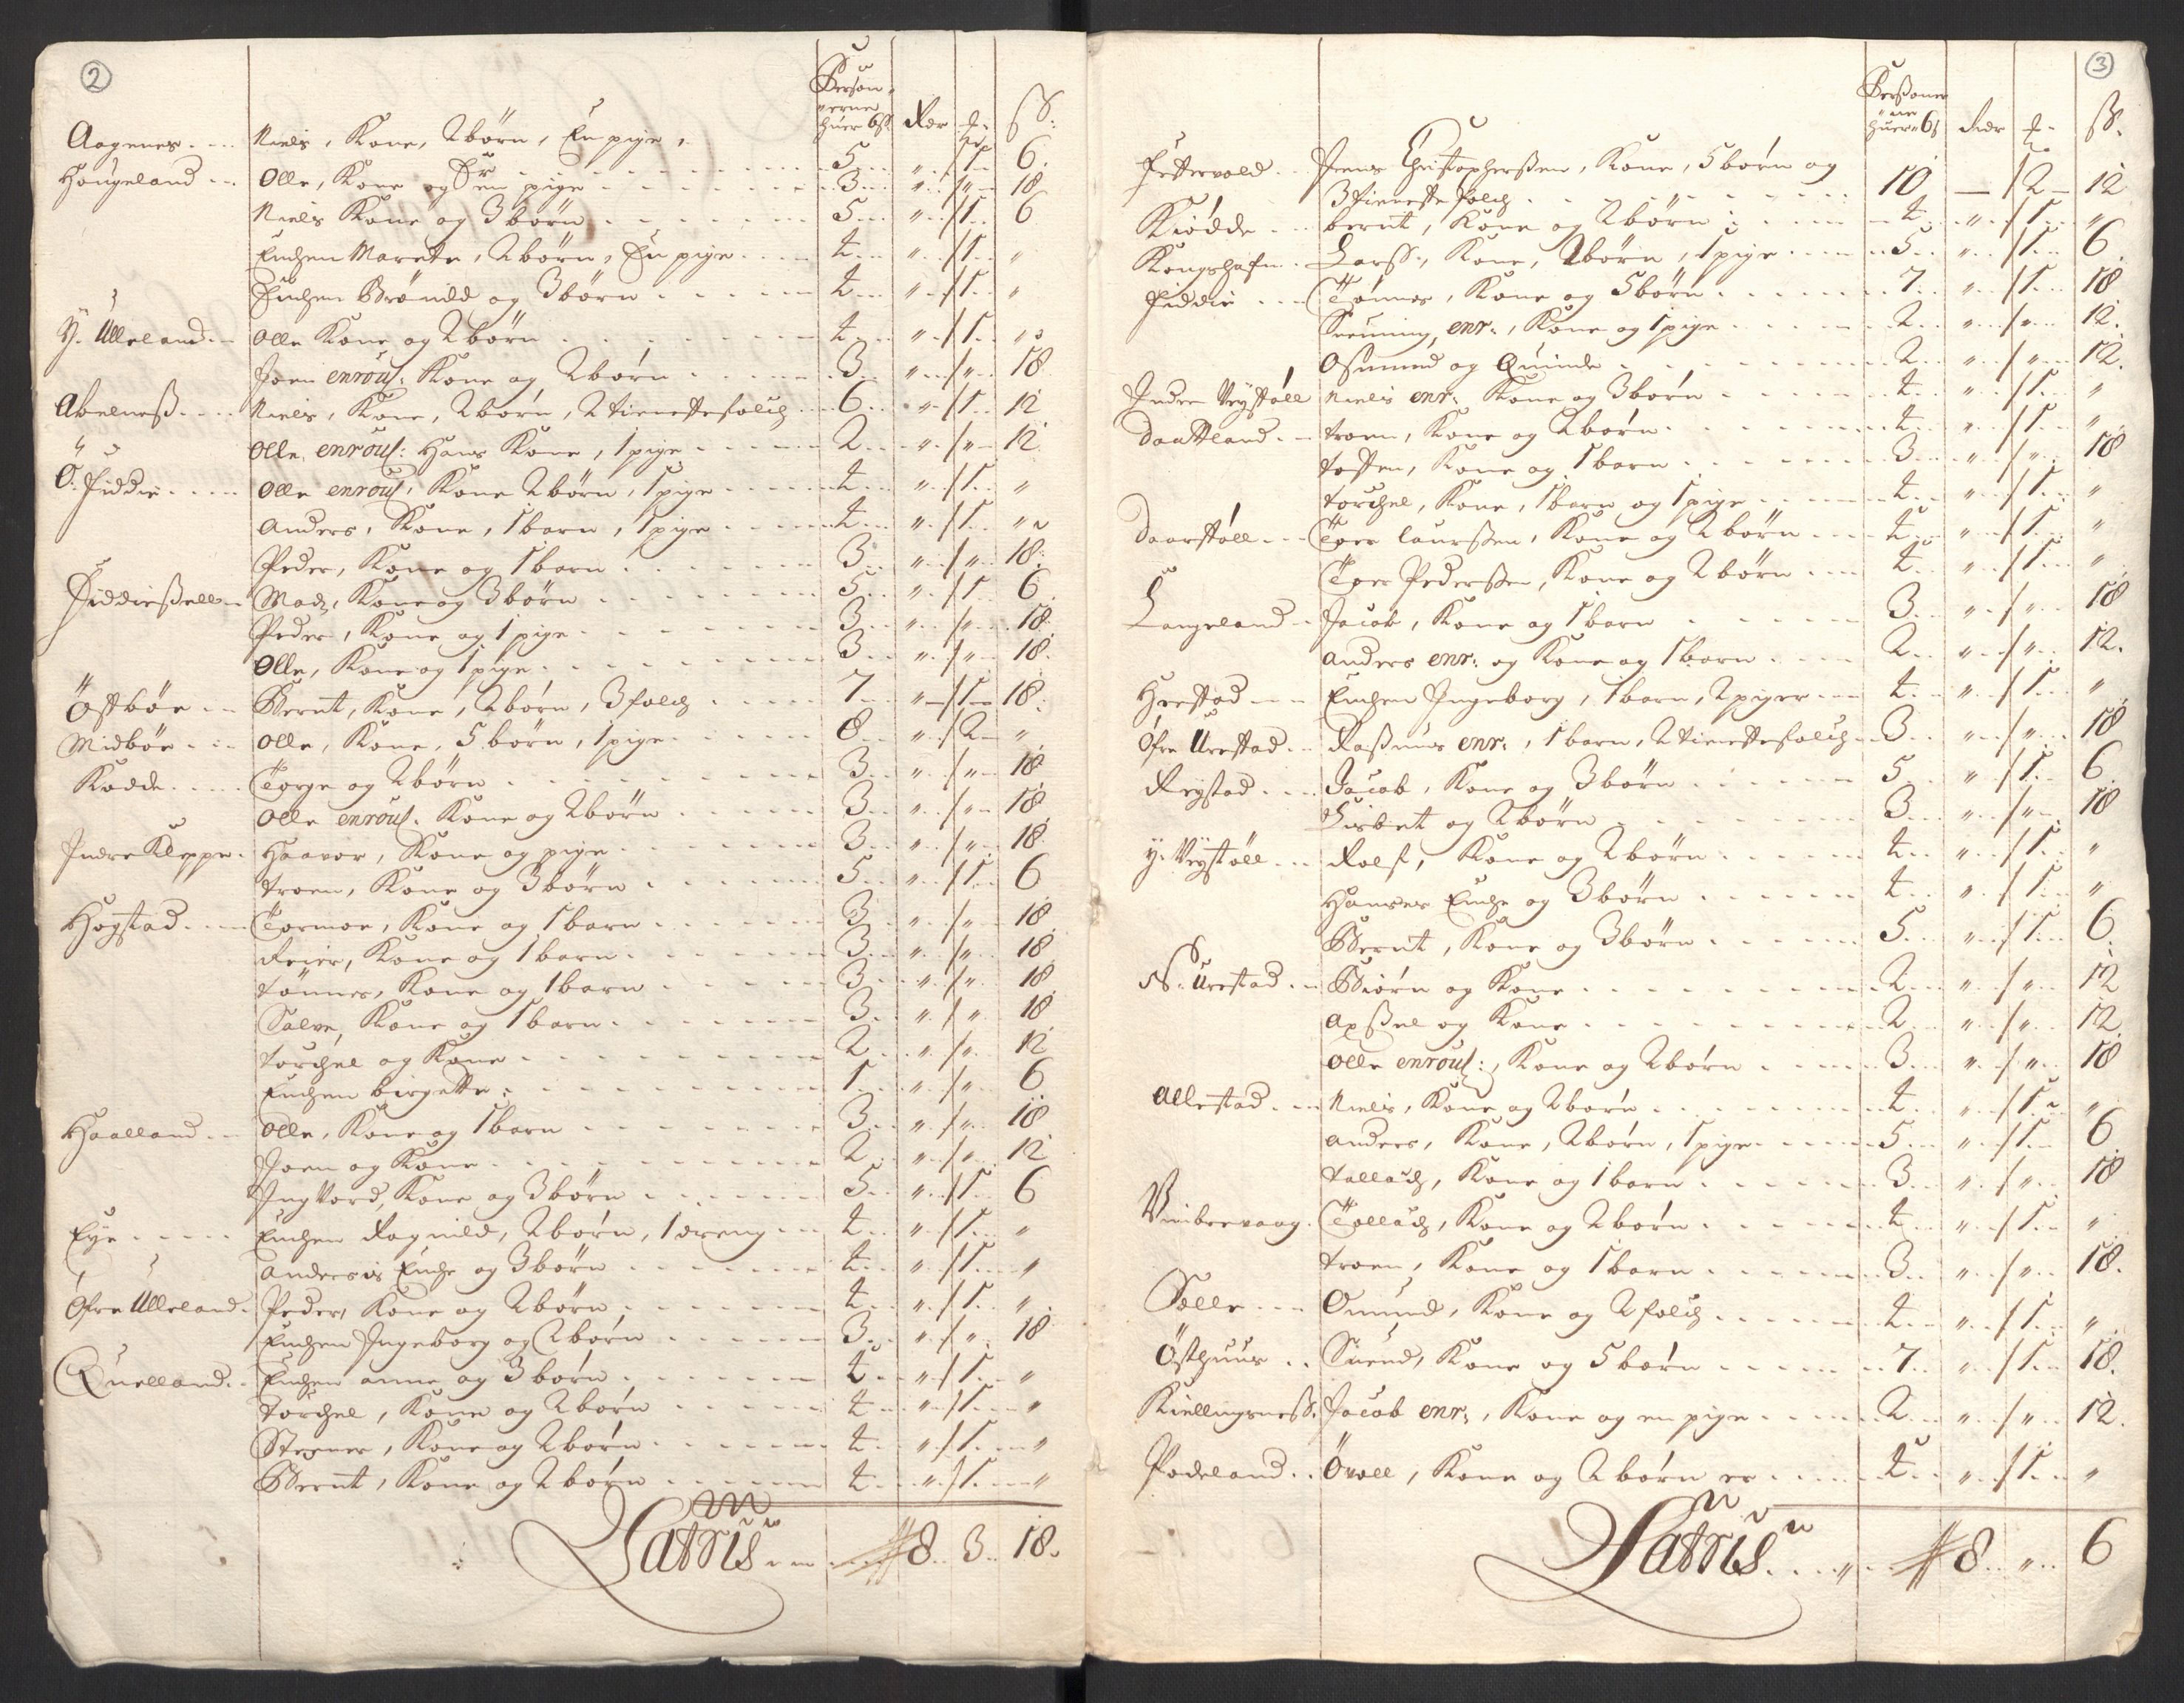 2
Person-
erne
huer 6 ß
Rdr
ß:
Aagenes . . . Niels, Kone, 2 børn, En pige, . . . 5 . . " . . 1 . . 6
Haugeland . . . Olle, Kone og En pige . . . 3 . . " . . " . . 18
Niels Kone og 3 børn . . . 5 . . " . . 1 . . 6
Enchen Marete, 2 børn, En pige . . . 4 . . " . . 1 . . "
Enchen Brønild og 3 børn . . . 4 . . " . . 1 . . "
Y. Ulleland . . Olle Kone og 2 børn . . . 4 . . " . . 1 . . "
Joen enroul: Kone og 2 børn . . . 3 . . " . . " . . 18
Abelneß . . . Niels, Kone, 2 børn, 2 tienestefolch . . 6 . . " . . 1 . . 12
Olle enroul: Hans Kone, 1 pige . . . 2 . . " . . " . . 12
Ö. Fiddie . . . Olle enroul, Kone 2 børn, 1 pige . . . 4 . . " . . 1 . . "
Anders, Kone, 1 barn, 1 pige . . . 4 . . " . . 1 . . "
Peder, Kone og 1 barn . . . 3 . . " . . " . . 18
Fiddießell . . Madz, Kone og 3 børn . . . 5 . . " . . 1 . . 6
Peder, Kone og 1 pige . . . 3 . . " . . " . . 18
Olle, Kone og 1 pige . . . 3 . . " . . " . . 18
Östbøe . . . Bernt, Kone, 2 børn, 3 folch . . . 7 . . " . . 1 . . 18
Midbøe . . . Olle, Kone, 5 børn, 1 pige . . . 8 . . " . . 2 . . "
Kodde . . . Torge og 2 børn . . . 3 . . " . . " . . 18
Olle enroul. Kone og 2 børn . . . 3 . . " . . " . . 18
Indre Kleppe . Haavor, Kone og pige . . . 3 . . " . . " . . 18
Troen, Kone og 3 børn . . . 5 . . " . . 1 . . 6
Hogstad . . . Tormoe, Kone og 1 barn . . . 3 . . " . . " . . 18
Reier, Kone og 1 barn . . . 3 . . " . . " . . 18
Tønnes, Kone og 1 barn . . . 3 . . " . . " . . 18
Salve, Kone og 1 barn . . . 3 . . " . . " . . 18
Torchel og Kone . . . 2 . . " . . " . . 12
Enchen birgette . . . 1 . . " . . " . . 6
Haalland . . . Olle, Kone og 1 barn . . . 3 . . " . . " . . 18
Joen og Kone . . . 2 . . " . . " . . 12
Ingvord, Kone og 3 børn . . . 5 . . " . . 1 . . 6
Eye . . . Enchen Ragnild, 2 børn, 1 dreng . . . 4 . . " . . 1 . . "
Andersis Enche og 3 børn . . . 4 . . " . . 1 . . "
Öfre Ulleland . Peder, Kone og 2 børn . . . 4 . . " . . 1 . . "
Enchen Ingeborg og 2 børn . . . 3 . . " . . " . . 18
Quelland . . Enchen anne og 3 børn . . . 4 . . " . . 1 . . "
Torchel, Kone og 2 børn . . . 4 . . " . . 1 . . "
Stepner, Kone og 2 børn . . . 4 . . " . . 1 . . "
Bernt, Kone og 2 børn . . . 4 . . " . . 1 . . "
Latris . . . 8 . . 3 . . 18
3
Persone-
ne
huer 6 ß
Rdr
ß.
Fettervold . . Jens Christophersen, Kone, 5 børn og
3 tieneste folch . . . 10 — 2 — 12
Kiødde . . . bernt, Kone og 2 børn . . . 4 . . " . . 1 . . "
Kongshafn . Larß, Kone, 2 børn, 1 pige . . . 5 . . " . . 1 . . 6
Fiddie . . . Tønnes, Kone og 5 børn . . . 7 . . " . . 1 . . 18
enr., Kone og 1 pige . . . 2 . . " . . " . . 12.
Osmund og Quinde . . . 2 . . " . . " . . 12.
Indre Veystøll Niels enr. Kone og 3 børn . . . 4 . . " . . 1 . . "
Daatland . . Troen, Kone og 2 børn . . . 4 . . " . . 1 . . "
Tosten, Kone og 1 barn . . . 3 . . " . . " . . 18
Torchel, Kone, 1 barn og 1 pige . . . 4 . . " . . 1 . . "
Daarstøll . . . Toer Laurßen, Kone og 2 børn . . . 4 . . " . . 1 . . "
Toer Pederßen, Kone og 2 børn . . . 4 . . " . . 1 . . "
Langeland . . Jacob, Kone og 1 barn . . . 3 . . " . . " . . 18
Anders enr: og Kone og 1 barn . . . 2 . . " . . " . . 12.
Hrestad . . . Enchen Ingeborg, 1 barn, 2 piger . . . 4 . . " . . 1 . . "
Öfre Urestad . . Raßmus enr., 1 barn, 2 tienestefolch . . 3 . . " . . " . . 18
Reystad . . . Jacob, Kone og 3 børn . . . 5 . . " . . 1 . . 6
Lisbet og 2 børn . . . 3 . . " . . " . . 18
Y. Veystøll . . . Rolf, Kone og 2 børn . . . 4 . . " . . 1 . . "
Hanses Enche og 3 børn . . . 4 . . " . . 1 . . "
Bernt, Kone og 3 børn . . . 5 . . " . . 1 . . 6
N. Urestad . . Biørn og Kone . . . 2 . . " . . " . . 12
Apßel og Kone . . . 2 . . " . . " . . 12.
Olle enroul:, Kone og 2 børn . . . 3 . . " . . " . . 18
Allestad . . . Niels, Kone og 2 børn . . . 4 . . " . . 1 . . "
Anders, Kone, 2 børn, 1 pige . . . 5 . . " . . 1 . . 6
Tallach, Kone og 1 barn . . . 3 . . " . . " . . 18
Vimbrevaag . Tollach, Kone og 2 børn . . . 4 . . " . . 1 . . "
Troen, Kone og 1 barn . . . 3 . . " . . " . . 18.
Solle . . . Omund, Kone og 2 folch . . . 4 . . " . . 1 . . "
Östhuus . . Suend, Kone og 5 børn . . . 7 . . " . . 1 . . 18.
Kiellingsneß . Jacob enr:, Kone og en pige . . . 2 . . " . . " . . 12.
Podeland . . Ovall, Kone og 2 børn er . . . 4 . . " . . 1 . . "
Latris . . . " . . 8 . . " . . 6